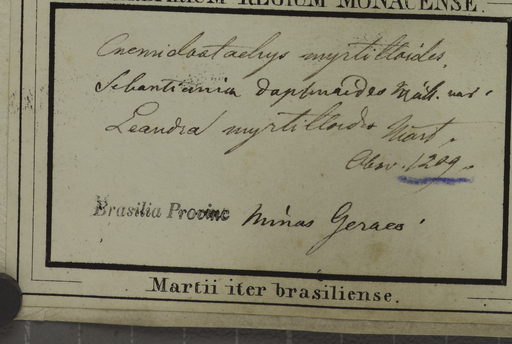 HERBARIUM REGIUM MONACENSE.
Cnemidostachys myrtilloides.
Sebastiania daphnoides Müll. var.
Leandra myrtilloides Mart.
Obsv. 1209.
Brasilia Provinc Minas Geraes.
Martii iter brasiliense.